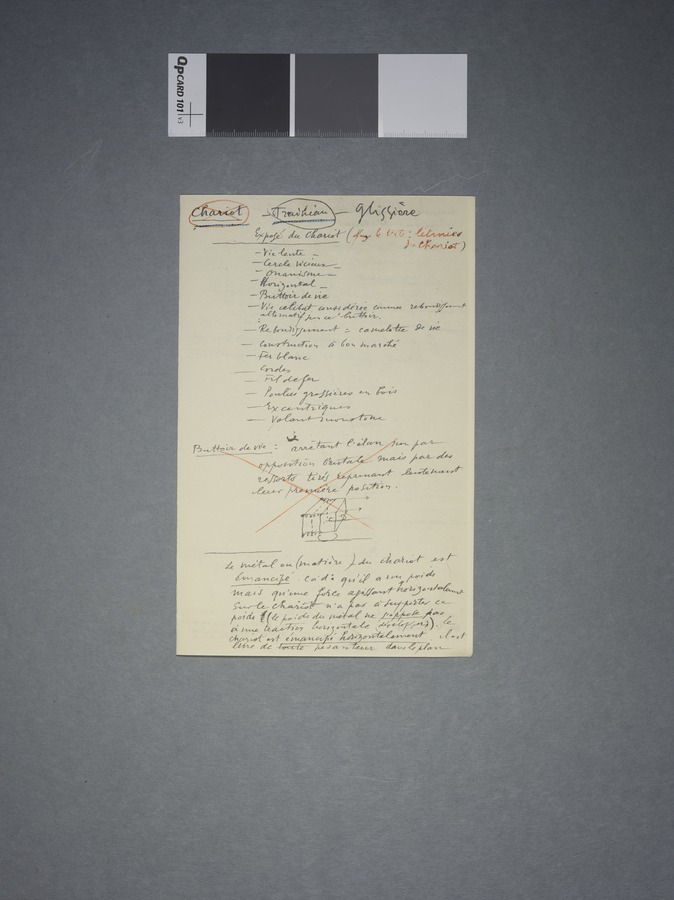 QPCARD 101 v3
Chariot → Traîneau — glissière
Exposé du Chariot ( : litanies
du Chariot)
— Vie lente —
— Cercle vicieux —
— Onanisme —
— Horizontal —
— Buttoir de vie
— Vie célibat considérée comme rebondissement
alternatif sur ce buttoir.
— Rebondissement = camelotte de vie
— Construction à bon marché
— Fer blanc
— Cordes
— Fil de fer
— Poulies grossières en bois
— Excentriques
— Volant monotone
Buttoir de vie : arrêtant l'élan non par
opposition brutale mais par des
ressorts tirés reprenant lentement
leur première position.
Le métal ou (matière) du chariot est
émancipé c.à.d. qu'il a un poids
mais qu'une force agissant horizontalement
sur le chariot n'a pas à supporter ce
poids (le poids du métal ne s'oppose pas
à une traction horizontale (développer). Le
chariot est émancipé horizontalement il est
libre de toute pesanteur dans le plan